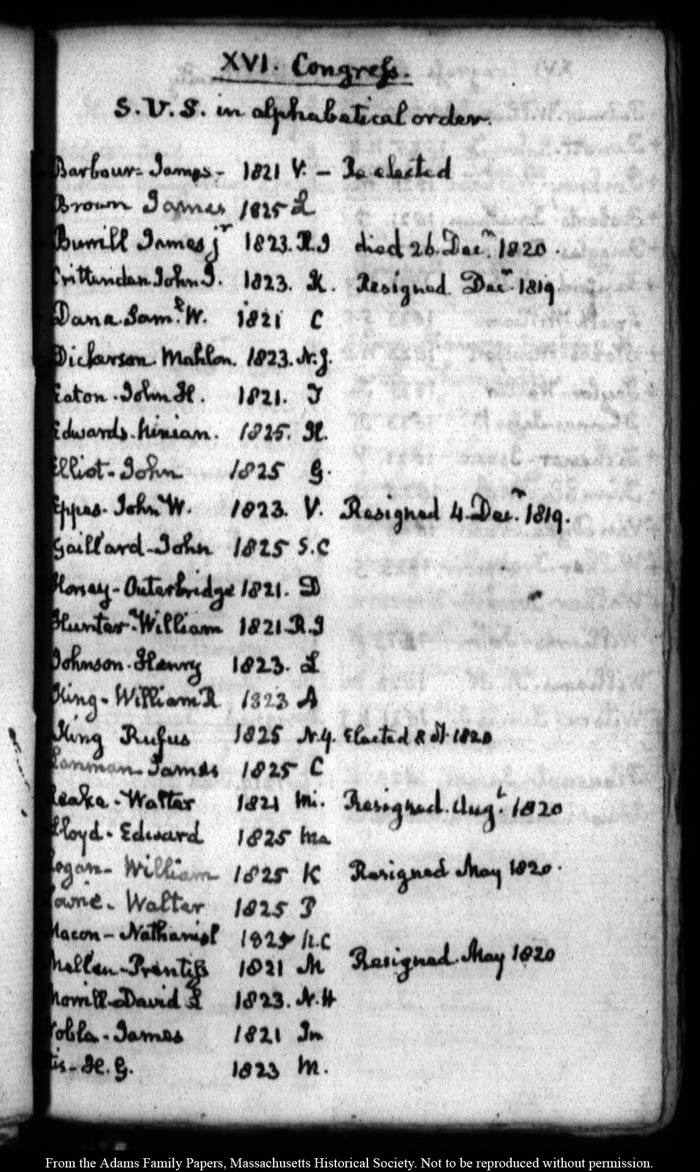 XVI. Congress.
S. U. S. in alphabetical order.
Barbour- James- 1821 V. - Re elected
Brown James 1825 L
Burrill James jr 1823. R.I died 26. Decr. 1820.
Crittenden John J. 1823. K. Resigned Decr. 1819
Dana Saml. W. 1821 C
Dickerson Mahlon. 1823. N.J.
Eaton- John H. 1821. T
Edwards- Ninian. 1825. Il.
Elliot- John 1825 G.
Eppes- John W. 1823. V. Resigned 4. Decr. 1819.
Gaillard- John 1825 S.C
Horsey- Outerbridge 1821. D
Hunter- William 1821. R.I
Johnson- Henry 1823. L
King- William R 1823 A
King Rufus 1825 N.Y. Elected 8 Jy. 1820
Lanman- James 1825 C
Leake- Walter 1821 Mi. Resigned. Augt. 1820
Lloyd- Edward 1825 Ma
Logan- William 1825 K Resigned May 1820.
Lowrie- Walter 1825 P
Macon- Nathaniel 1825 N.C
Mellen- Prentiss 1821 M Resigned. May 1820
Morrill- David L 1823. N.H
Noble- James 1821 In
tis- H. G. 1823 M.
From the Adams Family Papers, Massachusetts Historical Society. Not to be reproduced without permission.